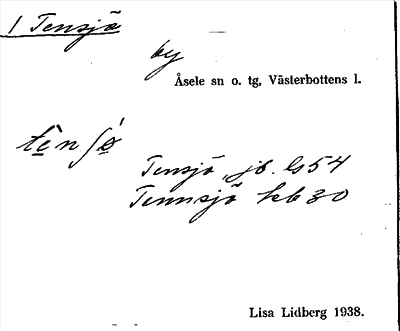 1 Tensjö
by
Åsele sn o. tg, Västerbottens l.
Tensjö, jb. ls 54
Tennsjö kb 30
Lisa Lidberg 1938.